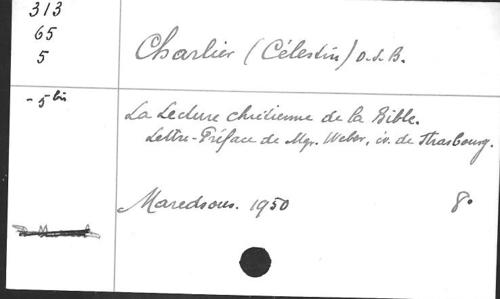 313
65
5
Charlier (Célestin) O.S.B.
- 5 bis
La Lecture chrétienne de la Bible.
Lettre-Préface de Mgr. Weber, év. de Strasbourg.
Maredsous. 1950 8°